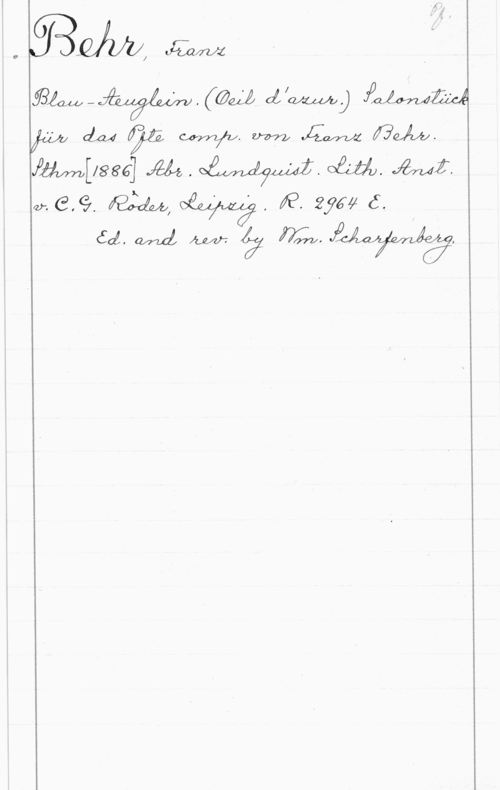 Pf.
Behr, Franz
Blau-Aeuglein. (Oeil d'azur.) Salonstück
für das Pfte comp. von Franz Behr.
Sthm [1886] Abr. Lundquist. Lith. Anst.
v. C. G. Röder, Leipzig. R. 2964 E.
Ed. and rev. by Wm. Scharfenberg.